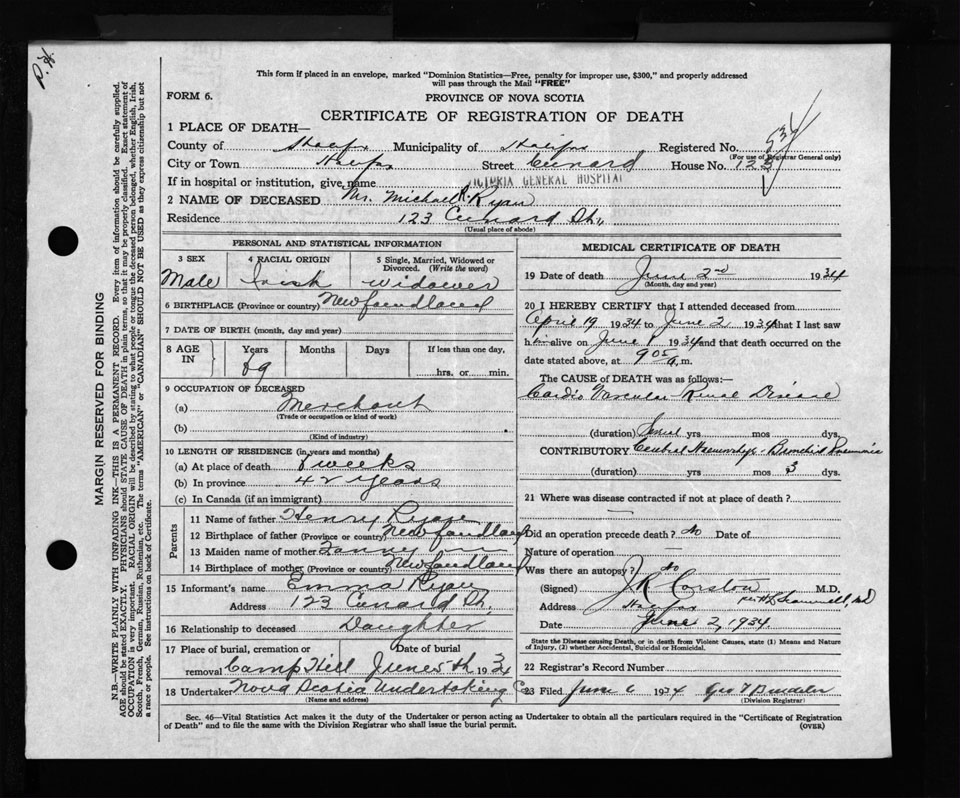 This form if placed in an envelope, marked "Dominion Statistics—Free, penalty for improper use, $300," and properly addressed
will pass through the Mail "FREE"
FORM 6.
PROVINCE OF NOVA SCOTIA
CERTIFICATE OF REGISTRATION OF DEATH
1 PLACE OF DEATH—
County of Halifax Municipality of Halifax Registered No. 534
(For use of Registrar General only)
City or Town Halifax Street Cunard House No. 123
If in hospital or institution, give name VICTORIA GENERAL HOSPITAL
2 NAME OF DECEASED Mr. Michael R. Ryan
Residence 123 Cunard St.,
(Usual place of abode)
PERSONAL AND STATISTICAL INFORMATION
3 SEX
Male
4 RACIAL ORIGIN
Irish
5 Single, Married, Widowed or
Divorced. (Write the word)
Widower
6 BIRTHPLACE (Province or country) Newfoundland
7 DATE OF BIRTH (month, day and year)
8 AGE IN
Years Months Days If less than one day,
89
hrs. or min.
9 OCCUPATION OF DECEASED
(a) Merchant
(Trade or occupation or kind of work)
(b)
(Kind of industry)
10 LENGTH OF RESIDENCE (in years and months)
(a) At place of death 8 weeks
(b) In province 42 years
(c) In Canada (if an immigrant)
Parents
11 Name of father Henry Ryan
12 Birthplace of father (Province or country) Newfoundland
13 Maiden name of mother Fanny —
14 Birthplace of mother (Province or country) Newfoundland
15 Informant's name Emma Ryan
Address 123 Cunard St.
16 Relationship to deceased Daughter
17 Place of burial, cremation or Date of burial
removal Camp Hill June 5th 1934
18 Undertaker Nova Scotia Undertaking Co
(Name and address)
MEDICAL CERTIFICATE OF DEATH
19 Date of death June 2nd 1934
(Month, day and year)
20 I HEREBY CERTIFY that I attended deceased from
April 19 1934 to June 2 1934 that I last saw
him alive on June 1934 and that death occurred on the
date stated above, at 9 05 a.m.
The CAUSE OF DEATH was as follows:—
Cardio Vascular Renal Disease
(duration) Several yrs mos dys.
CONTRIBUTORY Cerebral Haemorrhage - Bronchial Pneumonia
(duration) yrs mos 3 dys.
21 Where was disease contracted if not at place of death?
—
Did an operation precede death? No Date of
Nature of operation —
Was there an autopsy? No
(Signed) J R Corston M.D.
per H.L. Scammell, MD
Address Halifax
Date June 2, 1934
State the Disease causing Death, or in death from Violent Causes, state (1) Means and Nature
of Injury, (2) whether Accidental, Suicidal or Homicidal.
22 Registrar's Record Number
23 Filed June 6 1934 Geo T
(Division Registrar)
Sec. 46—Vital Statistics Act makes it the duty of the Undertaker or person acting as Undertaker to obtain all the particulars required in the "Certificate of Registration
of Death" and to file the same with the Division Registrar who shall issue the burial permit.
(OVER)
MARGIN RESERVED FOR BINDING
N.B.—WRITE PLAINLY WITH UNFADING INK—THIS IS A PERMANENT RECORD. Every item of information should be carefully supplied.
AGE should be stated EXACTLY. PHYSICIANS should STATE CAUSE OF DEATH in plain terms, so that it may be properly classified. Exact statement of
OCCUPATION is very important. RACIAL ORIGIN will be described by stating to what people or tongue the deceased person belonged, whether English, Irish,
Scotch, French, German, Russian, Ruthenian, etc. The terms "AMERICAN" or "CANADIAN" SHOULD NOT BE USED as they express citizenship but not
a race or people. See instructions on back of Certificate.